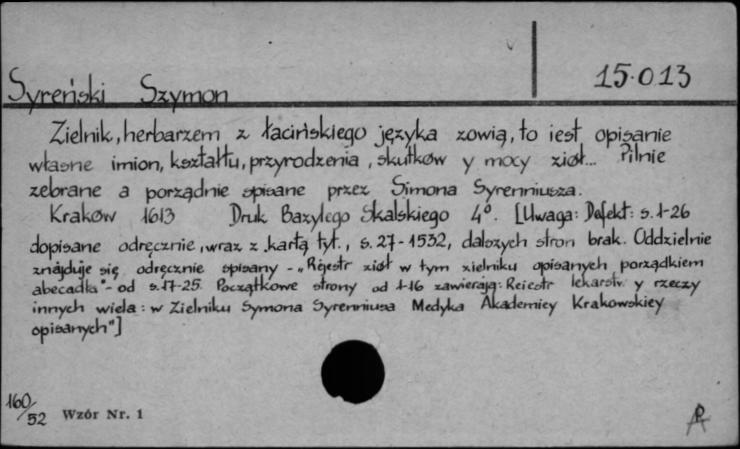 15.013
Syreński Szymon
Zielnik, herbarzem z łacińskiego języka zowią, to iest opisanie
własne imion, kształtu, przyrodzenia, skutków y mocy ziół... Pilnie
zebrane a porządnie spisane przez Simona Syrenniusza.
Kraków 1613 Druk Bazylego Skalskiego 4°. [Uwaga: Defekt: s. 1-26
dopisane odręcznie, wraz z kartą tyt., s. 27-1532, dalszych stron brak. Oddzielnie
znajduje się odręcznie spisany - „Rejestr ziół w tym zielniku opisanych porządkiem
abecadła" - od s. 17-25. Początkowe strony od 1-16 zawierają: Reiestr lekarstw y rzeczy
innych wiela: w Zielniku Symona Syrenniusa Medyka Akademiey Krakowskiey
opisanych"]
160/52 Wzór Nr. 1